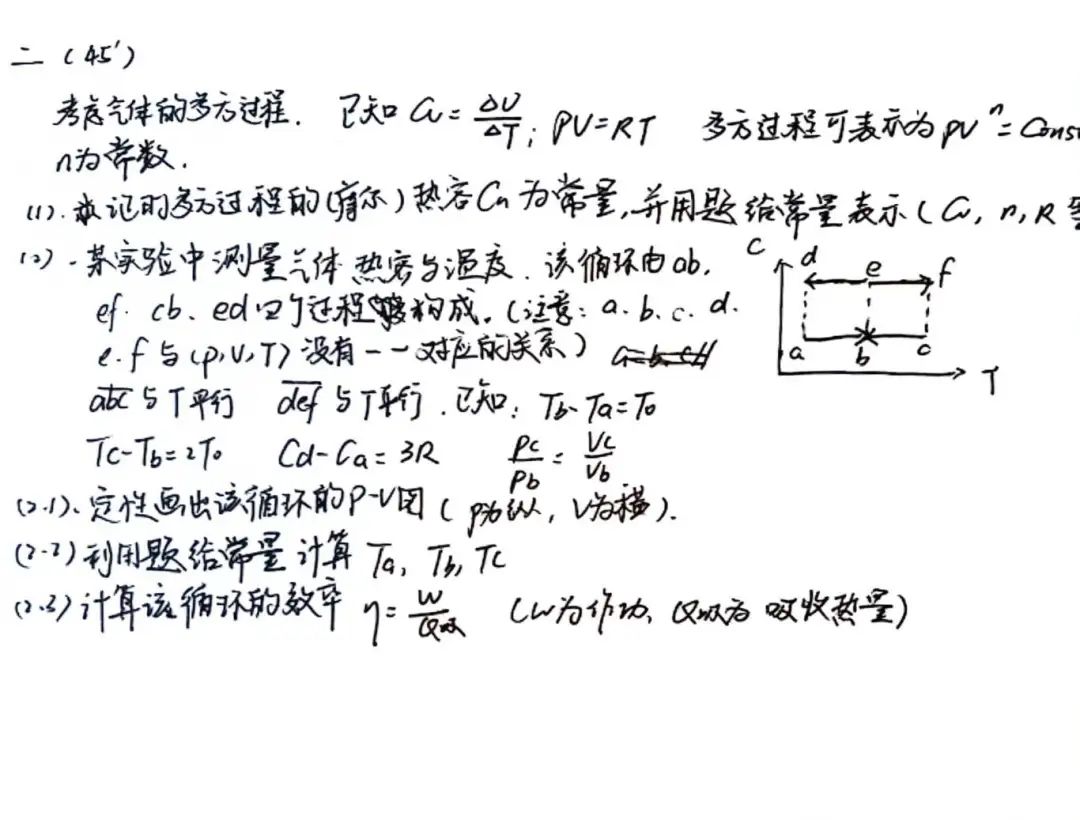 二 (45')
考虑气体的多方过程. 已知 Cv = ΔU/ΔT; PV=RT 多方过程可表示为 pVⁿ = Const
n为常数.
(1). 求证明多方过程的(摩尔)热容Cn为常量,并用题给常量表示(Cv, n, R
(2). 某实验中测量气体热容与温度. 该循环由ab.
ef. cb. ed四个过程构成. (注意: a. b. c. d.
e. f 与(p,V,T)没有一一对应的关系)
abc与T平行 def与T平行. 已知: Tb-Ta=T0
Tc-Tb=2T0 Cd-Ca=3R Pc/Pb = Vc/Vb
(2.1). 定性画出该循环的P-V图 (P为纵, V为横).
(2.2) 利用题给常量计算 Ta, Tb, Tc
(2.3) 计算该循环的效率 η = W/Q吸 (W为作功, Q吸为吸收热量)
C
d e f
a b c
T